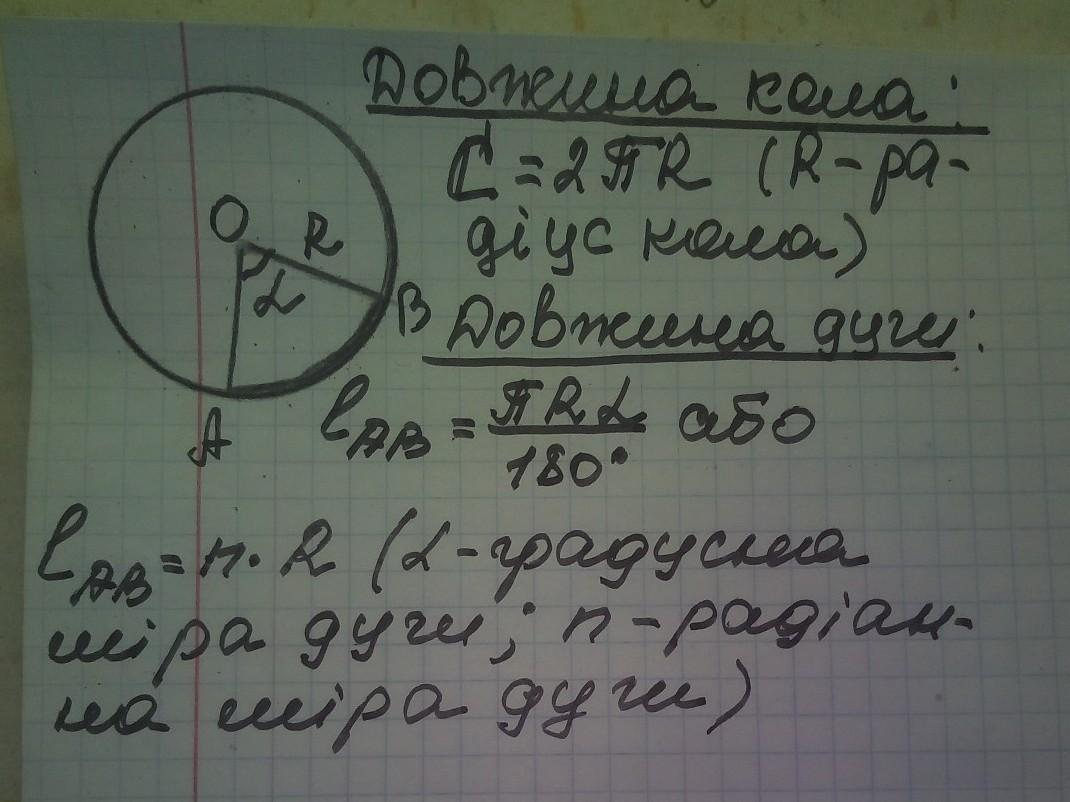 Довжина кола:
C = 2πR (R - ра-
діус кола)
O
R
α
B
A
Довжина дуги:
l_AB = πRα / 180° або
l_AB = n · R (α - градусна
міра дуги; n - радіан-
на міра дуги)